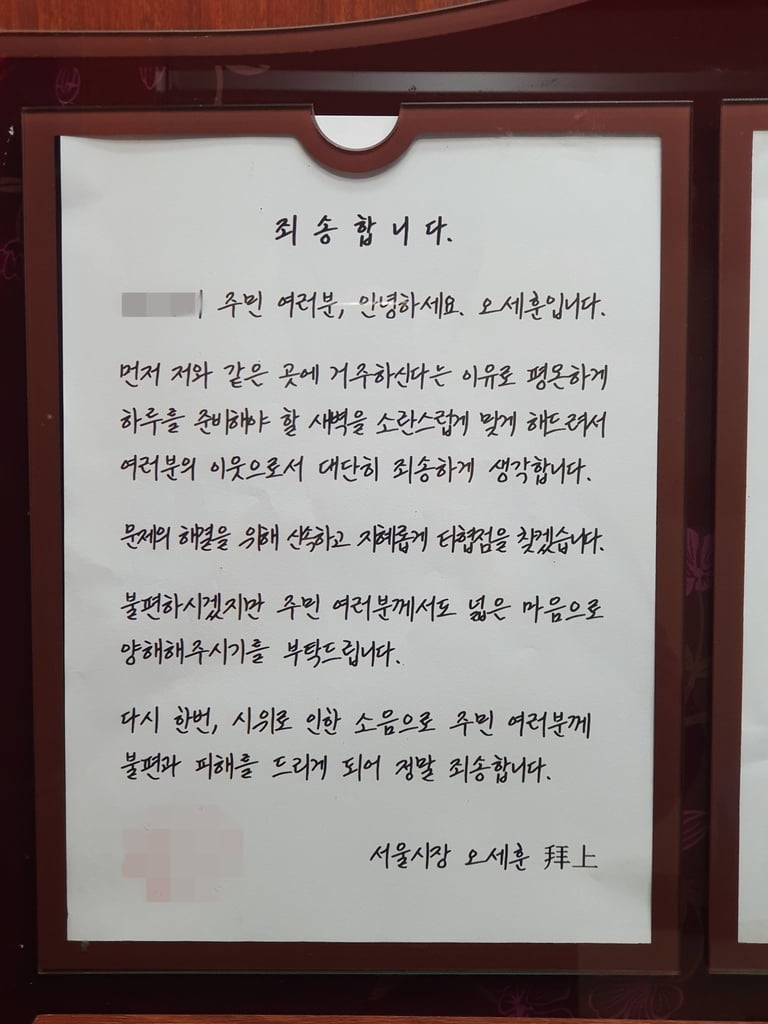 죄송합니다.
주민 여러분, 안녕하세요. 오세훈입니다.
먼저 저와 같은 곳에 거주하신다는 이유로 평온하게
하루를 준비해야 할 새벽을 소란스럽게 맞게 해드려서
여러분의 이웃으로서 대단히 죄송하게 생각합니다.
문제의 해결을 위해 신속하고 지혜롭게 타협점을 찾겠습니다.
불편하시겠지만 주민 여러분께서도 넓은 마음으로
양해해주시기를 부탁드립니다.
다시 한번, 시위로 인한 소음으로 주민 여러분께
불편과 피해를 드리게 되어 정말 죄송합니다.
서울시장 오세훈 拜上